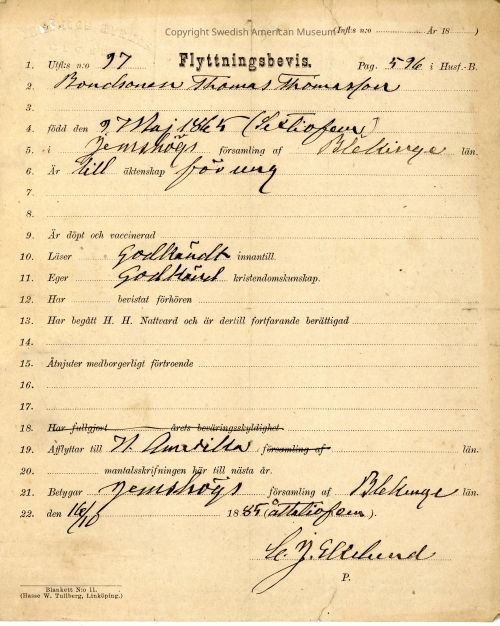 Copyright Swedish American Museum
(Infks n:o Är 18 )
1. Utfks n:o 97 Flyttningsbevis. Pag. 596 i Husf.-B.
2. Bondsonen Thomas Thomasson
3.
4. född den 27 Maj 1865 (Sextiofem)
5. i Jemshögs församling af Blekinge län.
6. Är till äktenskap för ung
7.
8.
9. Är döpt och vaccinerad
10. Läser Godkändt innantill.
11. Eger Godkänd kristendomskunskap.
12. Har bevistat förhören
13. Har begått H. H. Nattvard och är dertill fortfarande berättigad
14.
15. Åtnjuter medborgerligt förtroende
16.
17.
18. Har fullgjort årets beväringsskyldighet
19. Afflyttar till N. Amerika församling af län.
20. mantalsskrifningen här till nästa år.
21. Betygar Jemshögs församling af Blekinge län
22. den 16/10 1885 (åttatiofem).
P.
Blankett N:o 11.
(Hasse W. Tullberg, Linköping.)